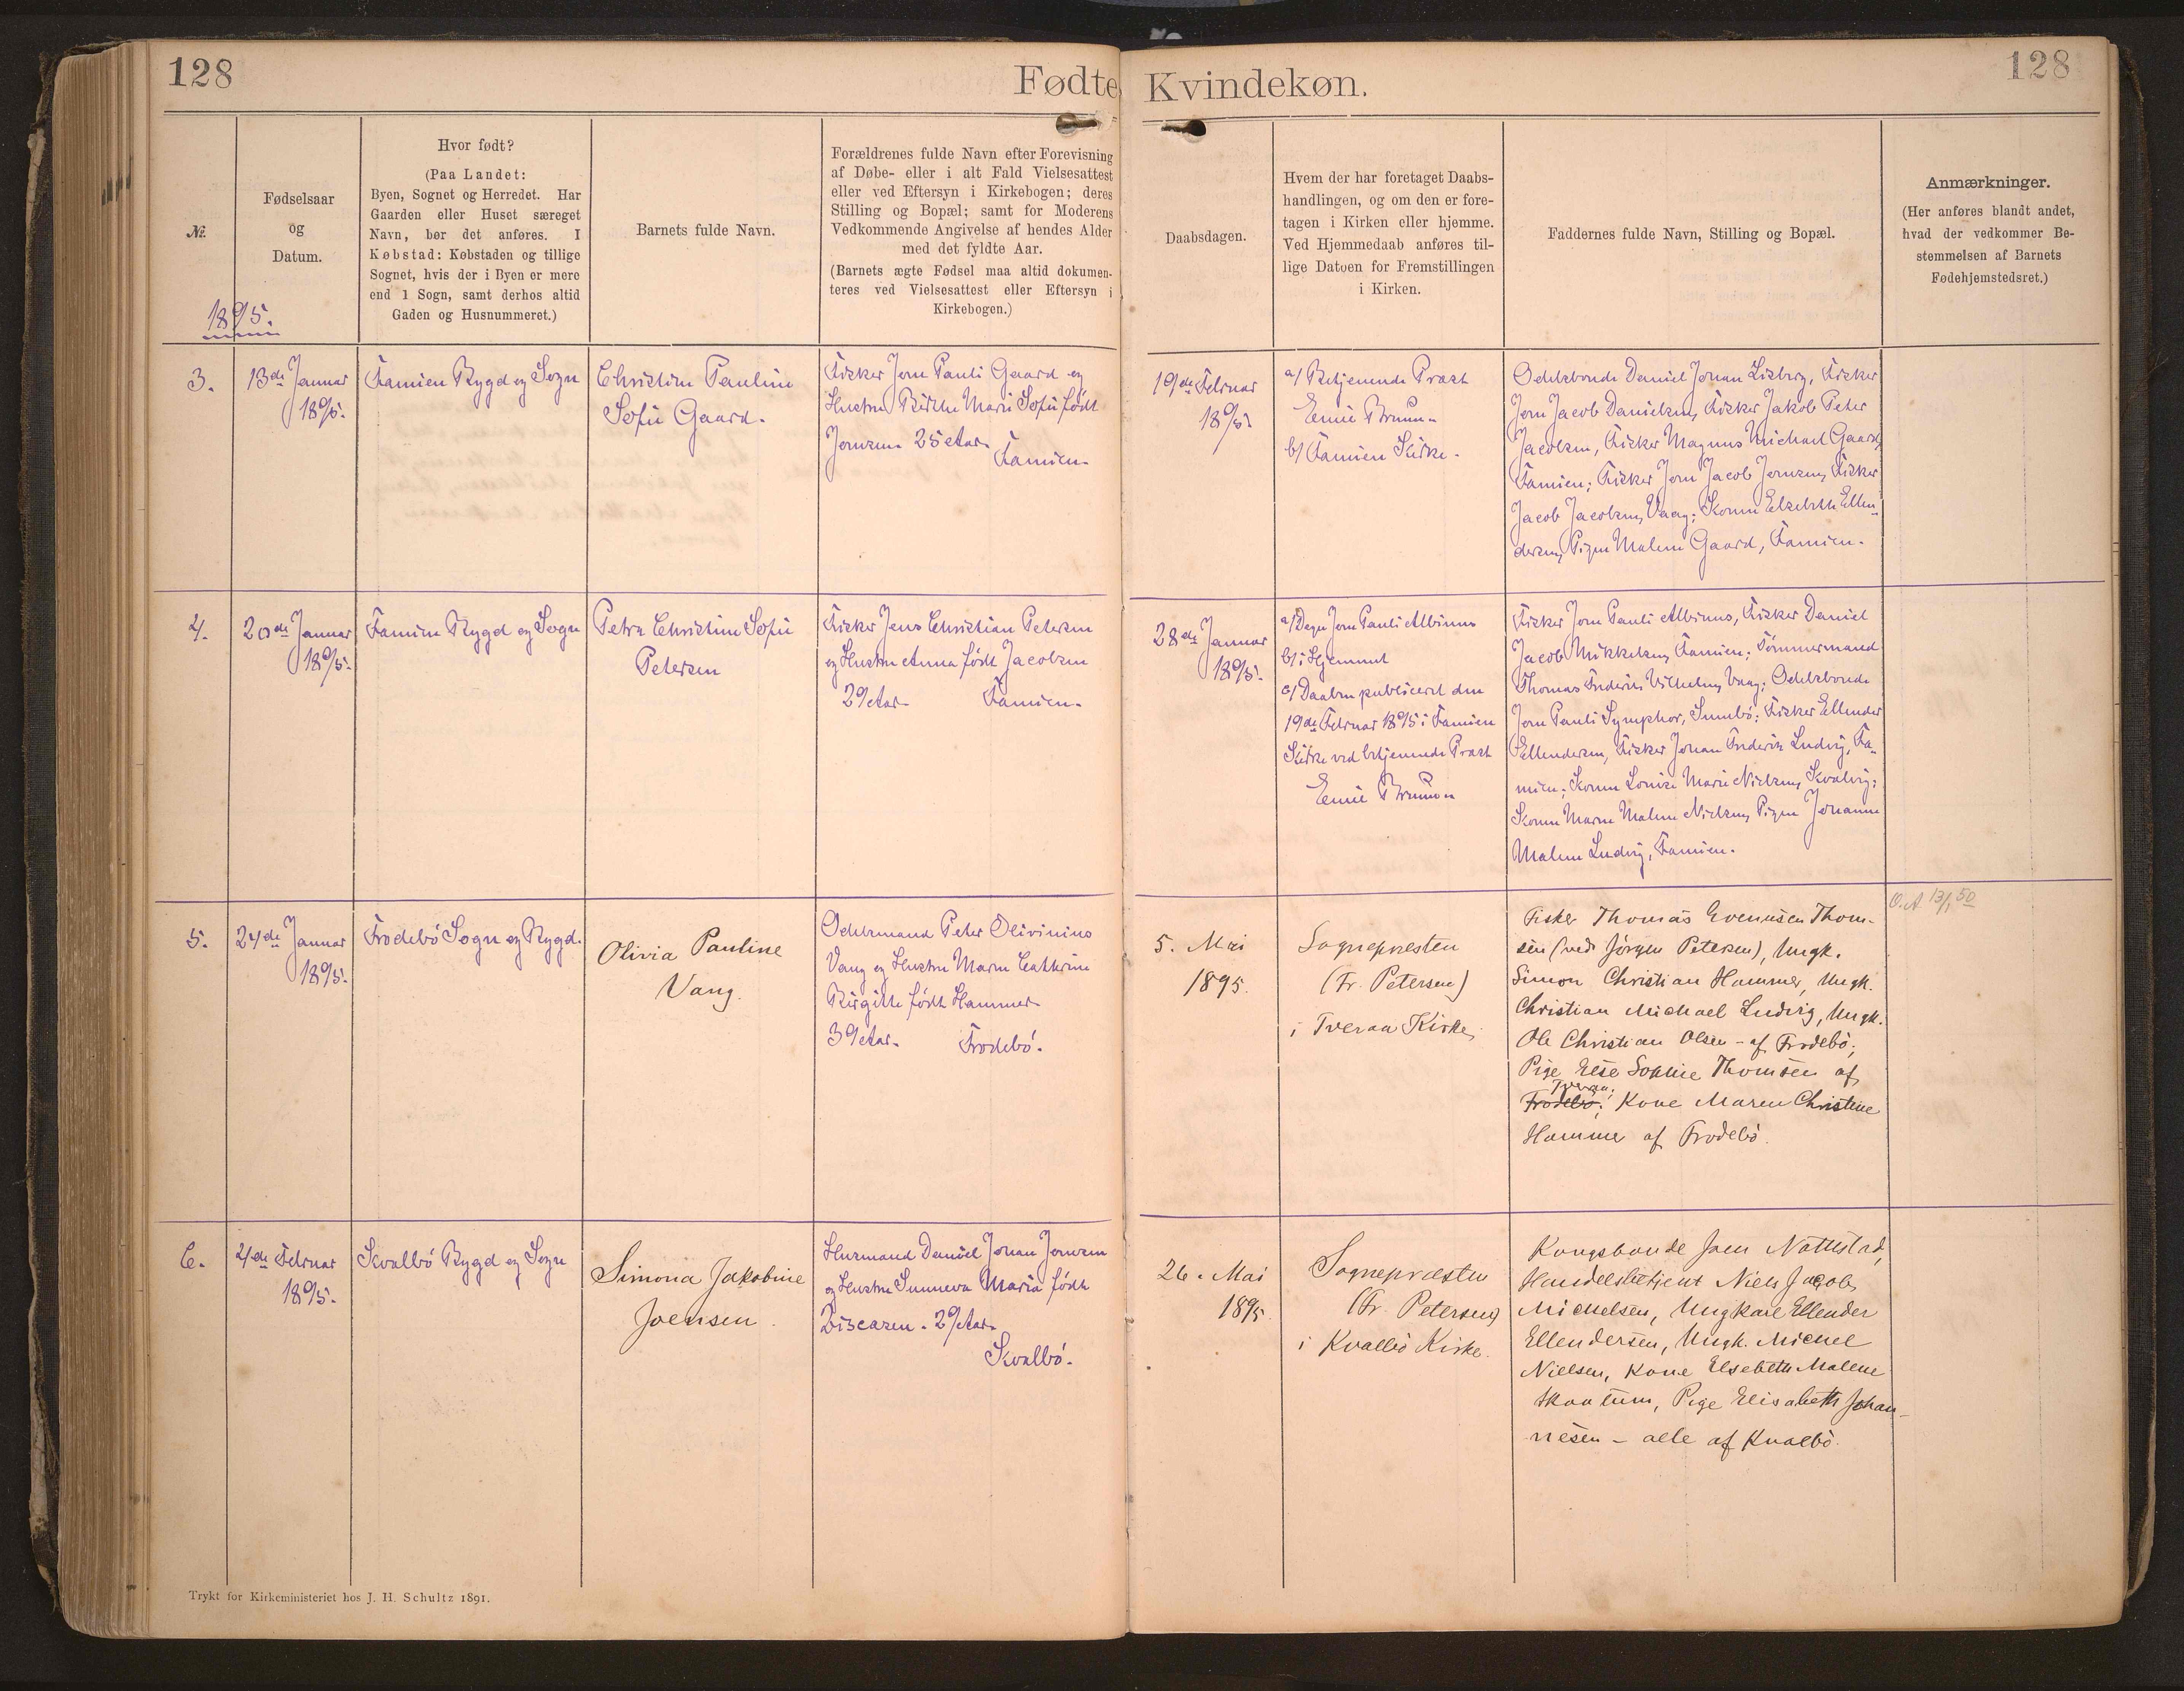 128
Fødte
Nr.
Fødselsaar
og
Datum.
Hvor født?
(Paa Landet:
Byen, Sognet og Herredet. Har
Gaarden eller Huset særeget
Navn, bør det anføres. I
Købstad: Købstaden og tillige
Sognet, hvis der i Byen er mere
end 1 Sogn, samt derhos altid
Gaden og Husnummeret.)
Barnets fulde Navn.
Forældrenes fulde Navn efter Forevisning
af Døbe- eller i alt Fald Vielsesattest
eller ved Eftersyn i Kirkebogen; deres
Stilling og Bopæl; samt for Moderens
Vedkommende Angivelse af hendes Alder
med det fyldte Aar.
(Barnets ægte Fødsel maa altid dokumen-
teres ved Vielsesattest eller Eftersyn i
Kirkebogen.)
1895.
3.
13de Januar
1895.
Famien Bygd og Sogn
Christine Pauline
Sofie Gaard.
Fisker Joen Pauli Gaard og
Hustru Birthe Marie Sofie født
Joensen. 25 Aar.
Famien.
4.
20de Januar
1895.
Famien Bygd og Sogn
Petra Christine Sofie
Petersen
Fisker Jens Christian Petersen
og Hustru Anna født Jacobsen
29 Aar.
Famien.
5.
24de Januar
1895.
Frodebö Sogn og Bygd.
Olivia Pauline
Vang.
Odelsmand Peter Olivinius
Vang og Hustru Maren Cathrine
Birgithe født Hammer
39 Aar.
Frodebö.
6.
4de Februar
1895.
Kvalbö Bygd og Sogn
Simona Jakobine
Joensen.
Husmand Daniel Johan Joensen
og Hustru Sunneva Maria født
Discasen. 29 Aar.
Kvalbö.
Trykt for Kirkeministeriet hos J. H. Schultz 1891.
Kvindekøn.
128
Daabsdagen.
Hvem der har foretaget Daabs-
handlingen, og om den er fore-
tagen i Kirken eller hjemme.
Ved Hjemmedaab anføres til-
lige Datoen for Fremstillingen
i Kirken.
Faddernes fulde Navn, Stilling og Bopæl.
Anmærkninger.
(Her anføres blandt andet,
hvad der vedkommer Be-
stemmelsen af Barnets
Fødehjemstedsret.)
19de Februar
1895.
a/ Betjenende Præst
Emil Bruun.
b/ Famien Kirke.
Odelsbonde Daniel Johan Lisberg, Fisker
Joen Jacob Danielsen, Fisker Jakob Peter
Jacobsen, Fisker Magnus Michael Gaard,
Famien; Fisker Joen Jacob Joensen, Fisker
Jacob Jacobsen, Vaag; Konen Elsebeth Ellen-
dersen, Pigen Malene Gaard, Famien.
28de Januar
1895.
a/ Degn Joen Pauli Albinus
b/ i Hjemmet
c/ Daaben publiceret den
19de Februar 1895 i Famien
Kirke ved betjenende Præst
Emil Bruun.
Fisker Joen Pauli Albinus, Fisker Daniel
Jacob Mikkelsen, Famien; Tömmermand
Thomas Frederik Vilhelm, Vaag; Odelsbonde
Joen Pauli Symphor, Sumbö; Fisker Ellender
Ellendersen, Fisker Johan Frederik Ludvig, Fa-
mien; Konen Louise Marie Nielsen, Kvalvig;
Konen Maren Malene Nielsen, Pigen Johanne
Malene Ludvig, Famien.
5. Mai
1895.
Sognepræsten
(Fr. Petersen)
i Tveraa Kirke
Fisker Thomas Evenusen Thom-
sen (ved Jörgen Petersen), Ungk.
Simon Christian Hammer, Ungk.
Christian Michael Ludvig, Ungk.
Ole Christian Olsen - af Frodebö;
Pige Else Sophie Thomsen af
Tveraa;
Frodebö; Kone Maren Christine
Hammer af Frodebö.
O.A. 13/1 50
26. Mai
1895.
Sognepræsten
(Fr. Petersen)
i Kvalbö Kirke.
Kongsbonde Joen Nattestad,
Handelsbetjent Niels Jacob
Michelsen, Ungkarl Ellender
Ellendersen, Ungk. Michel
Nielsen, Kone Elsebeth Malene
Skaalum, Pige Elisabeth Johan-
nesen - alle af Kvalbö.